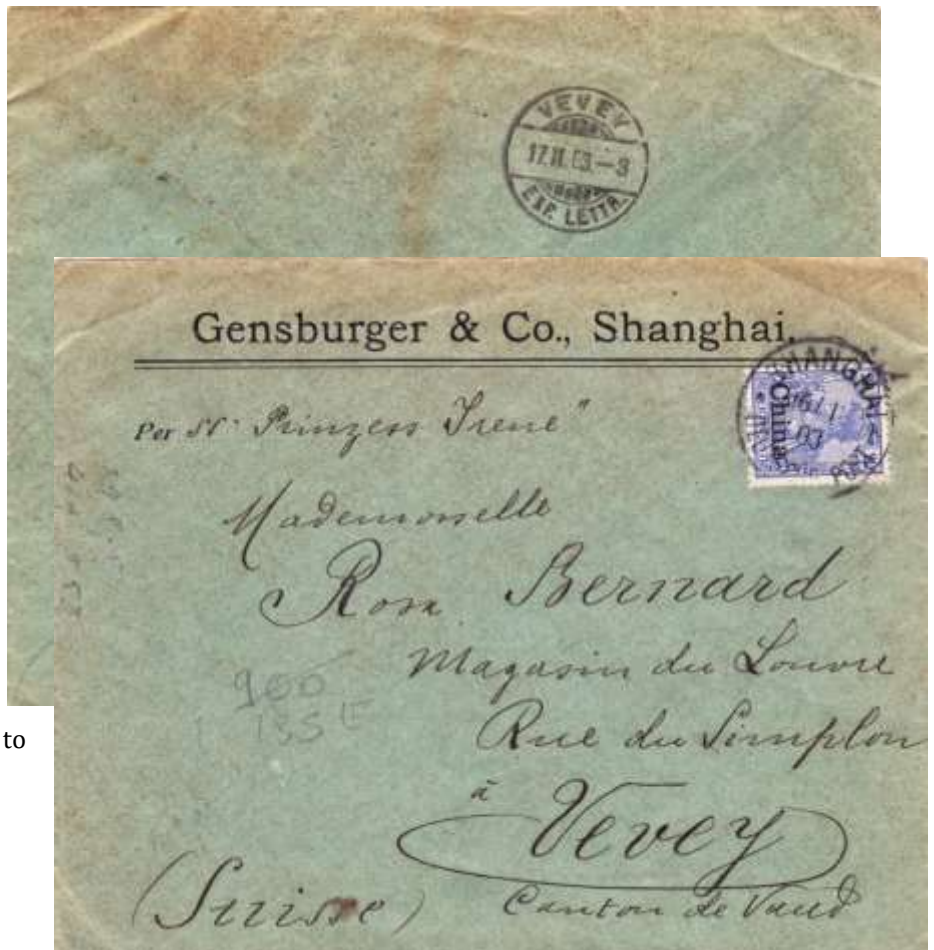 VEVEY
17.II.03.—3
EXP. LETTR.
Gensburger & Co., Shanghai.
SHANGHAI
China
16/1
03
Per SS "Prinzess Irene"
Mademoiselle
Rosa Bernard
Magasin du Louvre
Rue du Simplon
à
Vevey
(Suisse) Canton de Vaud
900
to